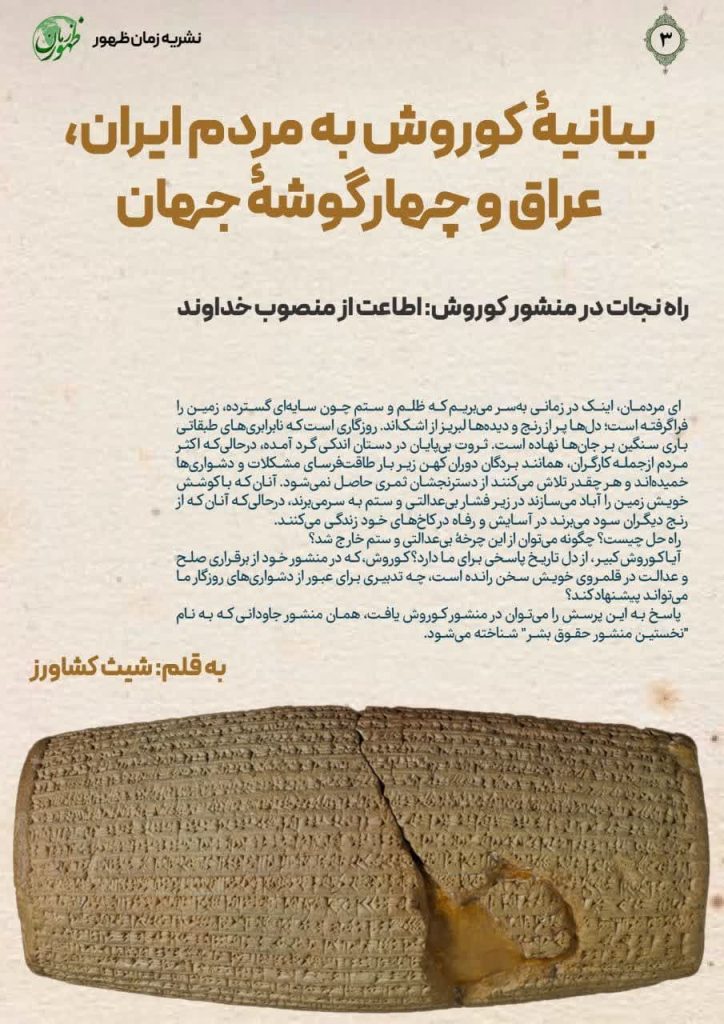 ۳
نشریه زمان ظهور
زمان ظهور
بیانیهٔ کوروش به مردم ایران،
عراق و چهارگوشهٔ جهان
راه نجات در منشور کوروش: اطاعت از منصوب خداوند
ای مردمان، اینک در زمانی به‌سر می‌بریم که ظلم و ستم چون سایه‌ای گسترده، زمین را
فراگرفته است؛ دل‌ها پر از رنج و دیده‌ها لبریز از اشک‌اند. روزگاری است که نابرابری‌های طبقاتی
باری سنگین بر جان‌ها نهاده است. ثروت بی‌پایان در دستان اندکی گرد آمده، درحالی‌که اکثر
مردم ازجمله کارگران، همانند بردگان دوران کهن زیر بار طاقت‌فرسای مشکلات و دشواری‌ها
خمیده‌اند و هر چقدر تلاش می‌کنند از دسترنجشان ثمری حاصل نمی‌شود. آنان که با کوشش
خویش زمین را آباد می‌سازند در زیر فشار بی‌عدالتی و ستم به سر می‌برند، درحالی‌که آنان که از
رنج دیگران سود می‌برند در آسایش و رفاه در کاخ‌های خود زندگی می‌کنند.
راه حل چیست؟ چگونه می‌توان از این چرخهٔ بی‌عدالتی و ستم خارج شد؟
آیا کوروش کبیر، از دل تاریخ پاسخی برای ما دارد؟ کوروش، که در منشور خود از برقراری صلح
و عدالت در قلمروی خویش سخن رانده است، چه تدبیری برای عبور از دشواری‌های روزگار ما
می‌تواند پیشنهاد کند؟
پاسخ به این پرسش را می‌توان در منشور کوروش یافت، همان منشور جاودانی که به نام
"نخستین منشور حقوق بشر" شناخته می‌شود.
به قلم: شیث کشاورز